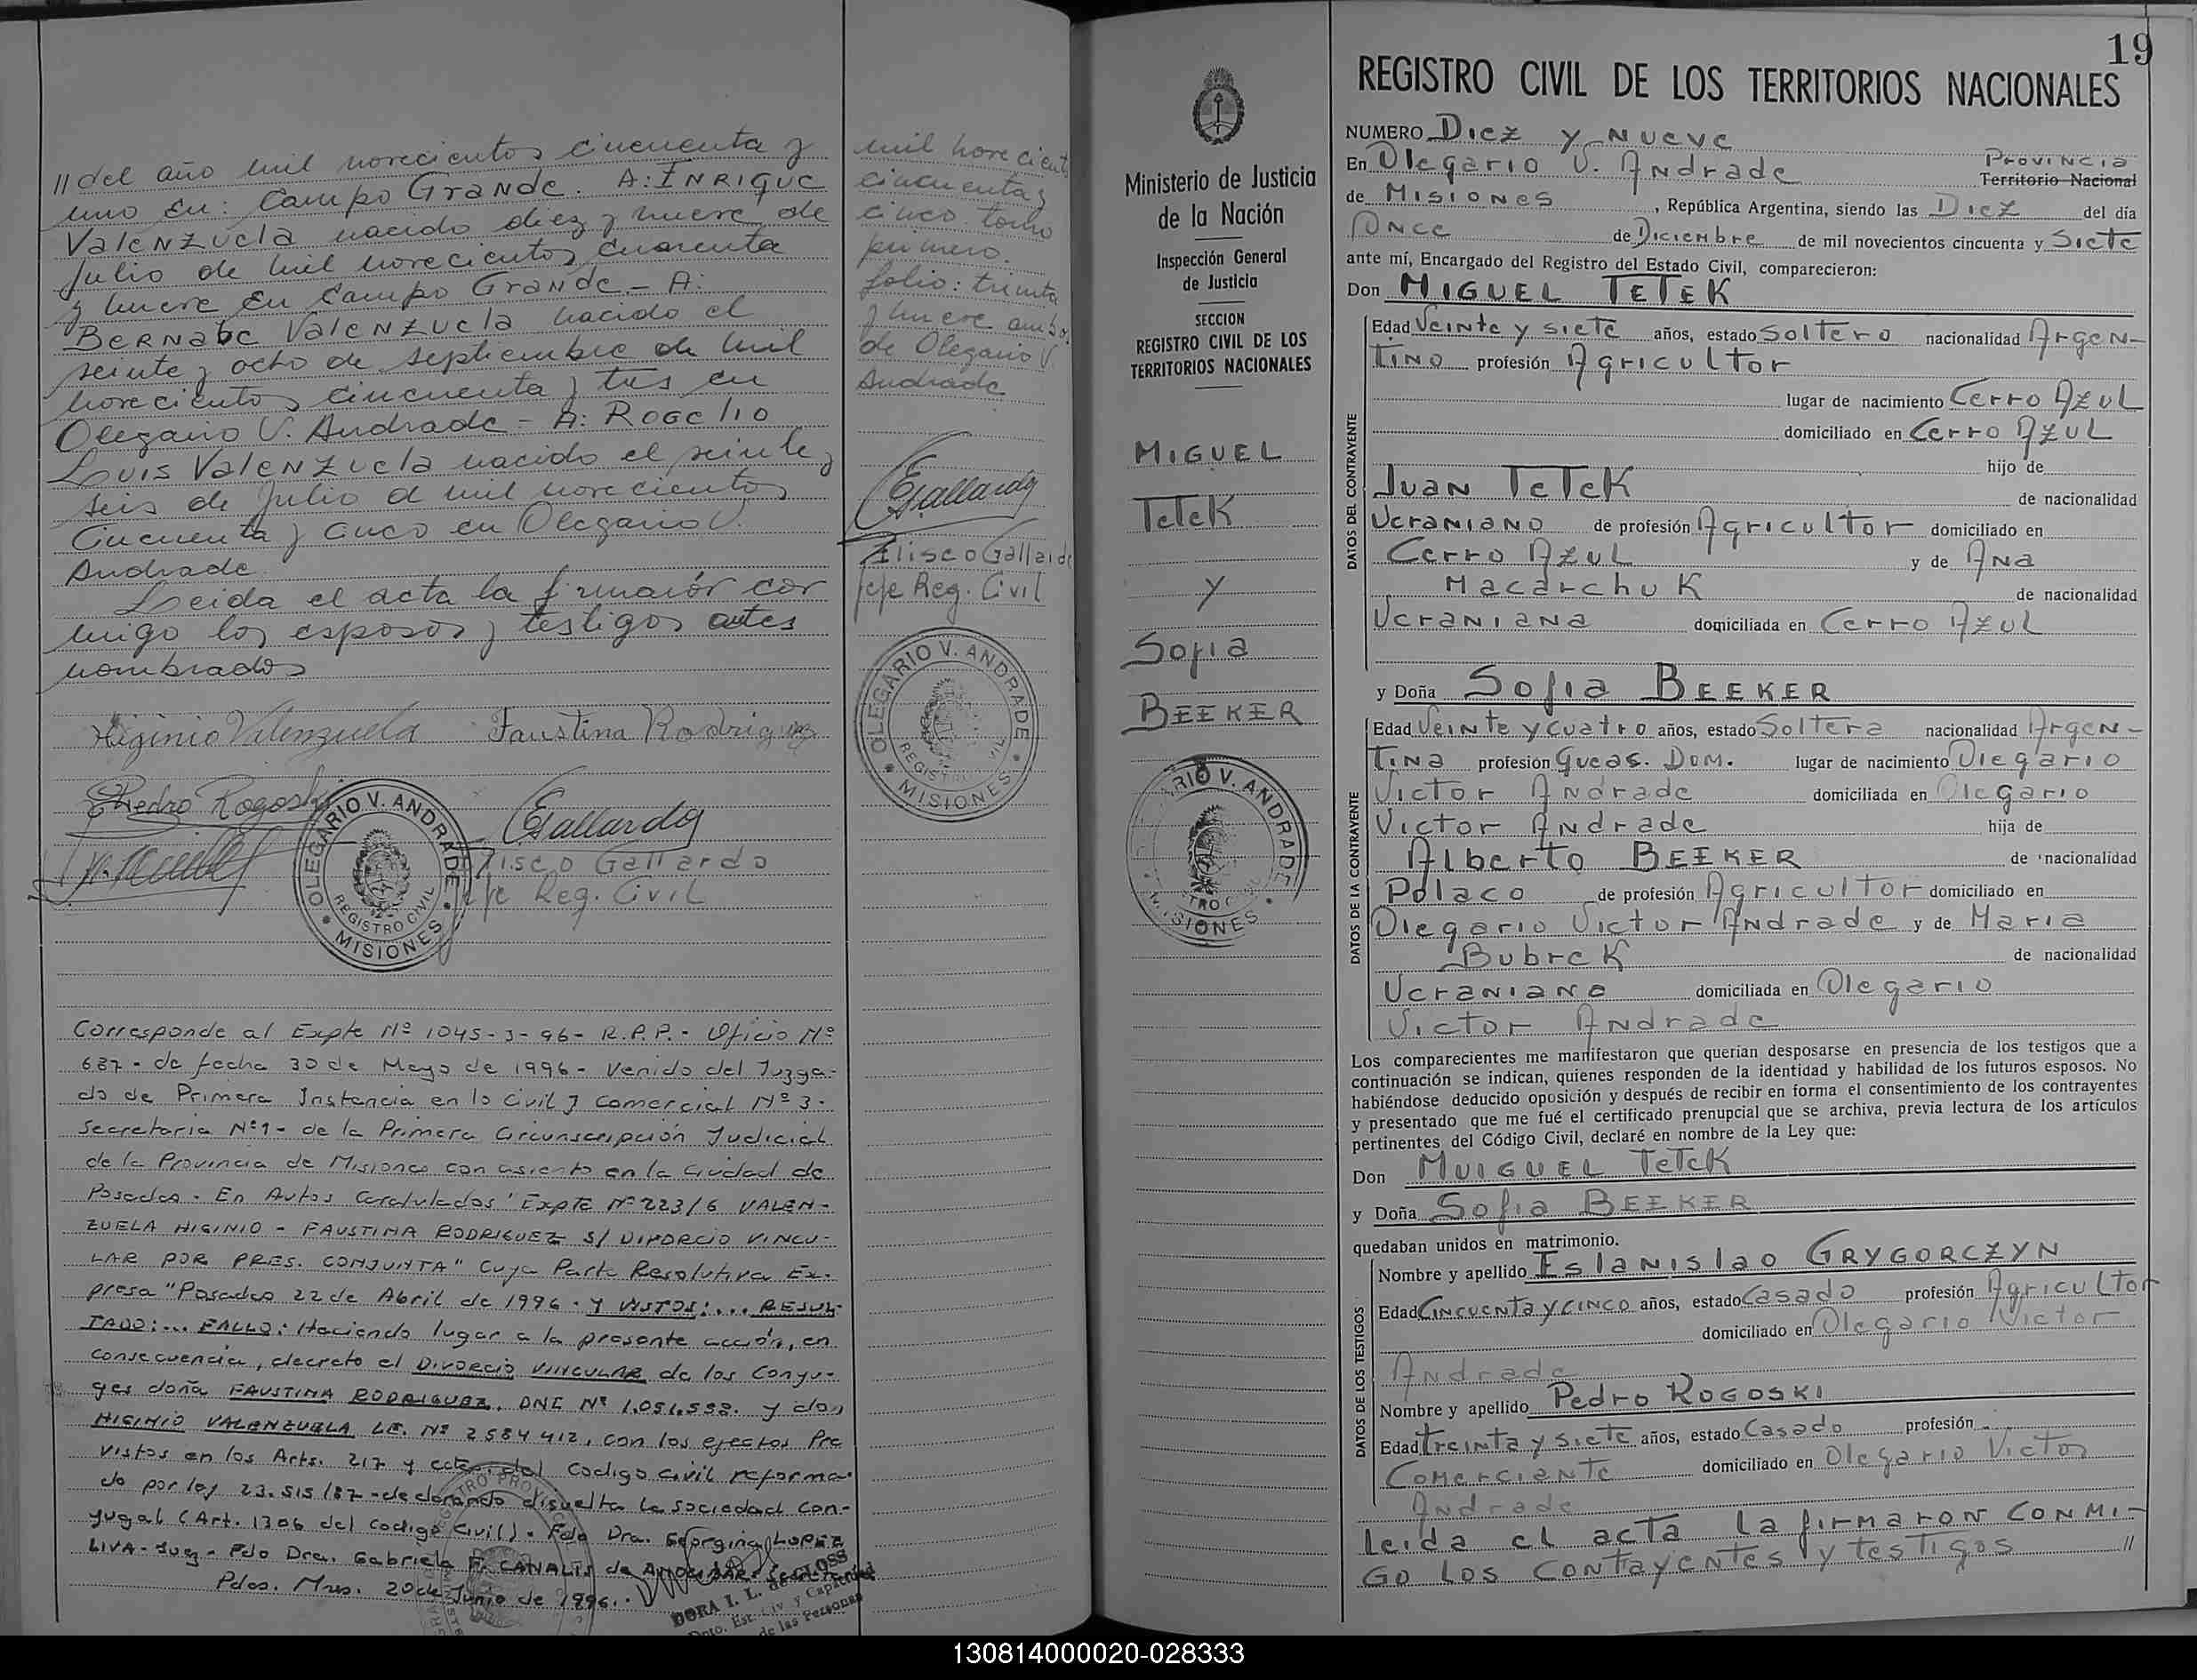 // del año mil novecientos cincuenta y
uno en: Campo Grande. A: ENRIQUE
ValENZUEla nacido diez y nueve de
Julio de mil novecientos cuarenta
y nueve en Campo Grande - A:
BERNabe ValENZUEla nacido el
veinte y ocho de septiembre de mil
novecientos cincuenta y tres en
Olegario V. Andrade - A: ROGElio
Luis ValENZUEla nacido el veinte y
seis de Julio d mil novecientos
Cincuenta y cinco en Olegario V.
Andrade
Leida el acta la firmarón con
migo los esposos y testigos antes
nombrados
Higinio Valenzuela Faustina Rodriguez
Pedro Rogoski
Gallardo
Elisco Gallardo
Jefe Reg. Civil
OLEGARIO V. ANDRADE
REGISTRO CIVIL
MISIONES
Corresponde al Expte Nº 1045-3-96- R.P.P.- Oficio Nº
687- de fecha 30 de Mayo de 1996- Venido del Juzga-
do de Primera Instancia en lo Civil y Comercial Nº 3-
Secretaria Nº 1- de la Primera Circunscripción Judicial
de la Provincia de Misiones con asiento en la Ciudad de
Posadas. En Autos Caratulados "Expte Nº 223/6 VALEN-
ZUELA HIGINIO - FAUSTINA RODRIGUEZ S/ DIVORCIO VINCU-
LAR POR PRES. CONJUNTA" Cuya Parte Resolutiva Ex-
presa "Posadas 22 de Abril de 1996. Y VISTOS:... RESUL-
TADO:... FALLO: Haciendo lugar a la presente acción, en
consecuencia, decreto el DIVORCIO VINCULAR de los Conyu-
ges doña FAUSTINA RODRIGUEZ, DNI Nº 1.051.598. y don
HIGINIO VALENZUELA LE. Nº 2584412, con los efectos Pre
vistos en los Arts. 217 y cctes. del Codigo Civil reforma-
do por ley 23.515/87 -declarando disuelta la sociedad con-
yugal (Art. 1306 del Codigo Civil). Fdo Dra. Georgina LOPEZ
LIVA- Juez- Fdo Dra. Gabriela F. CANALIS de
Pdas. Mnes. 20 de Junio de 1996.
DORA I. L. de GLOSS
Dpto. Est. Civ. y Capacidad
de las Personas
mil novecientos
cincuenta y
cinco tomo
primero.
folio: treinta
y nueve ambos
de Olegario V.
Andrade
Gallardo
Elisco Gallardo
Jefe Reg. Civil
OLEGARIO V. ANDRADE
REGISTRO CIVIL
MISIONES
Ministerio de Justicia
de la Nación
Inspección General
de Justicia
SECCION
REGISTRO CIVIL DE LOS
TERRITORIOS NACIONALES
MIGUEL
TETEK
y
Sofia
BEEKER
OLEGARIO V. ANDRADE
REGISTRO CIVIL
MISIONES
19
REGISTRO CIVIL DE LOS TERRITORIOS NACIONALES
NUMERO Diez y Nueve
En Olegario V. Andrade Provincia
Territorio Nacional
de Misiones , República Argentina, siendo las Diez del día
Once de Diciembre de mil novecientos cincuenta y Siete
ante mí, Encargado del Registro del Estado Civil, comparecieron:
Don MIGUEL TETEK
DATOS DEL CONTRAYENTE
Edad Veinte y siete años, estado Soltero nacionalidad Argen-
tino profesión Agricultor
lugar de nacimiento Cerro Azul
domiciliado en Cerro Azul
hijo de
Juan TETEK
de nacionalidad
Ucraniano de profesión Agricultor domiciliado en
Cerro Azul y de Ana
Macarchuk
de nacionalidad
Ucraniana domiciliada en Cerro Azul
y Doña Sofia BEEKER
DATOS DE LA CONTRAYENTE
Edad Veinte y cuatro años, estado Soltera nacionalidad Argen-
tina profesión Queas. Dom. lugar de nacimiento Olegario
Victor Andrade domiciliada en Olegario
Victor Andrade hija de
Alberto BEEKER de nacionalidad
Polaco de profesión Agricultor domiciliado en
Olegario Victor Andrade y de Maria
Bubrek de nacionalidad
Ucraniana domiciliada en Olegario
Victor Andrade
Los comparecientes me manifestaron que querían desposarse en presencia de los testigos que a
continuación se indican, quienes responden de la identidad y habilidad de los futuros esposos. No
habiéndose deducido oposición y después de recibir en forma el consentimiento de los contrayentes
y presentado que me fué el certificado prenupcial que se archiva, previa lectura de los artículos
pertinentes del Código Civil, declaré en nombre de la Ley que:
Don MUIGUEL TETEK
y Doña Sofia BEEKER
quedaban unidos en matrimonio.
DATOS DE LOS TESTIGOS
Nombre y apellido Eslanislao GRYGORCZYN
Edad Cincuenta y cinco años, estado Casado profesión Agricultor
domiciliado en Olegario Victor
Andrade
Nombre y apellido Pedro ROGOSKI
Edad treinta y siete años, estado Casado profesión
Comerciante domiciliado en Olegario Victor
Andrade
Leida el acta la firmaron conmi-
go los contayentes y testigos //
130814000020-028333